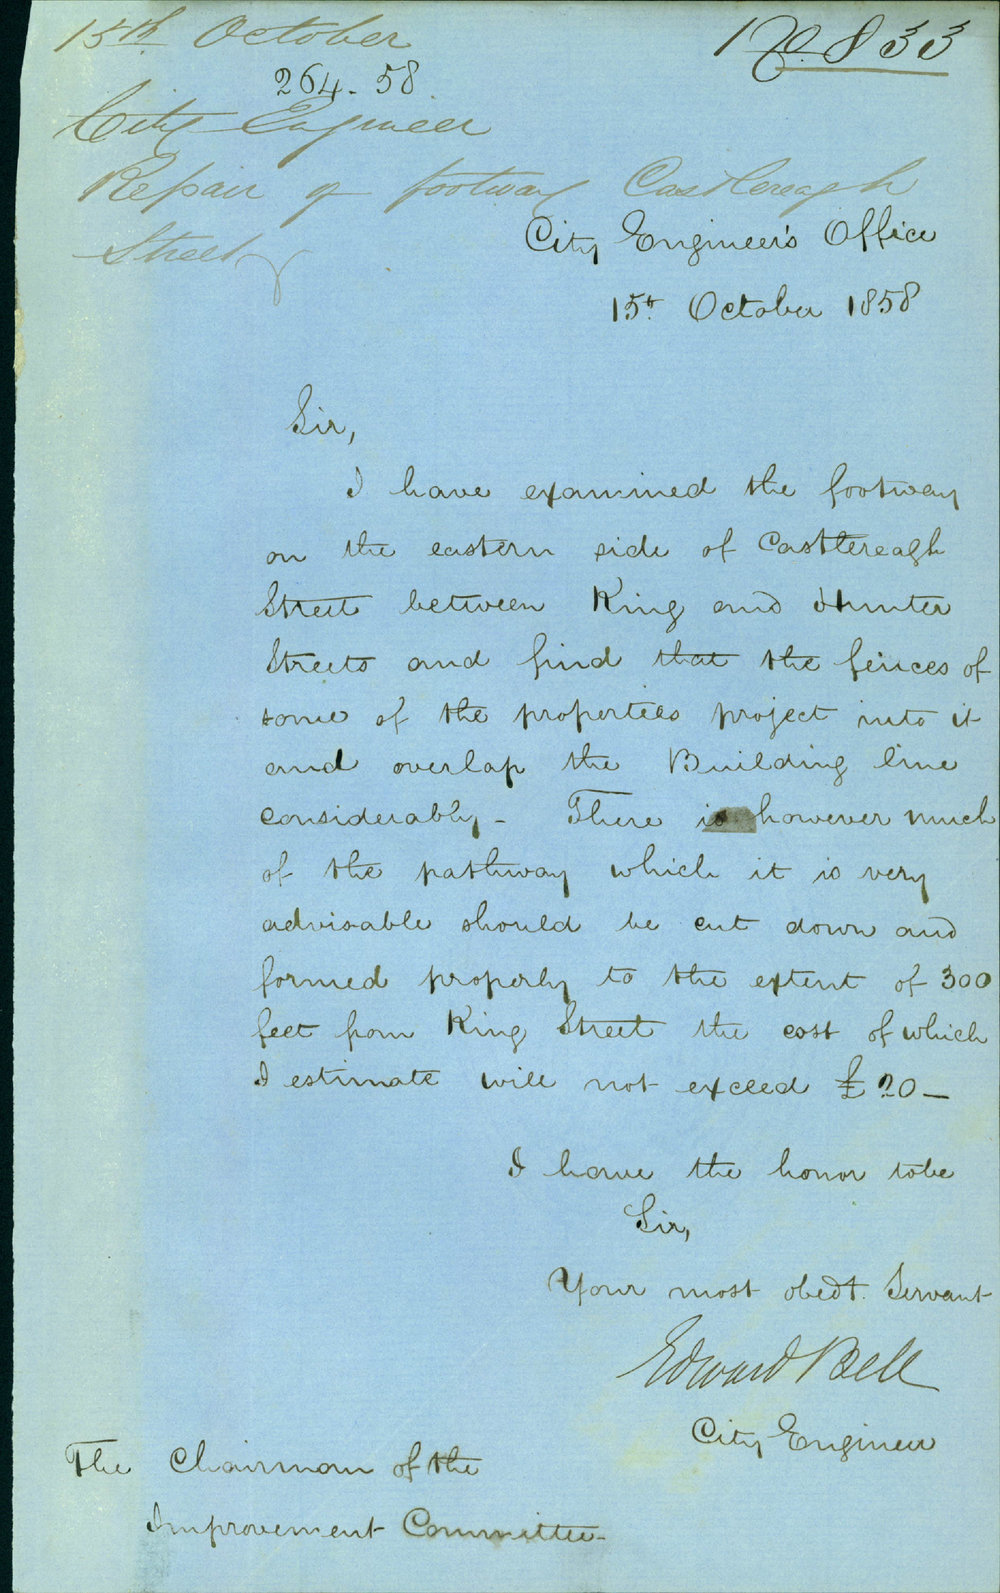 15th October
No. 833
264-58
City Engineer
Repair of footway Castlereagh
Street
City Engineer's Office
15th October 1858
Sir,
I have examined the footway
on the eastern side of Castlereagh
Street between King and Hunter
Streets and find that the fences of
some of the properties project into it
and overlap the Building line
considerably - There is however much
of the pathway which it is very
advisable should be cut down and
formed properly to the extent of 300
feet from King Street the cost of which
I estimate will not exceed £20 —
I have the honor to be
Sir,
Your most obedt. Servant
Edward Bell
City Engineer
The Chairman of the
Improvement Committee